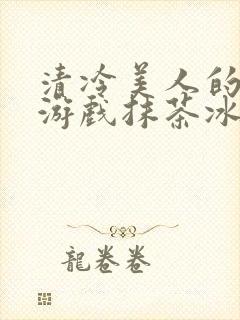 清冷美人的
游戏抹茶冰
龍卷卷